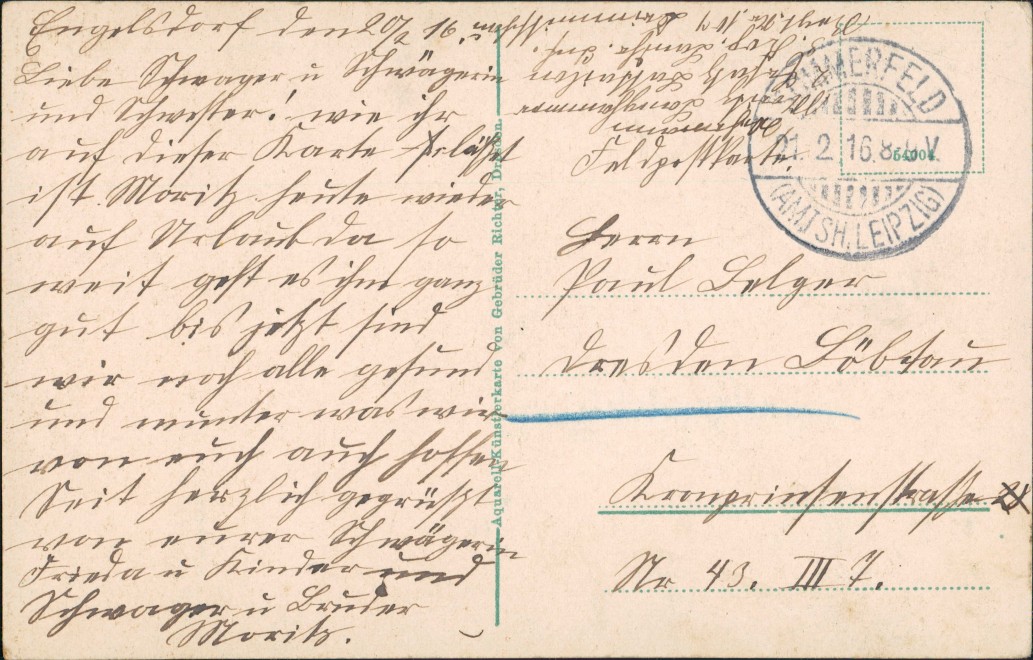 Engelsdorf den 20/2 16.
Liebe Schwager u Schwägerin
und Schwester! wie ihr
auf dieser Karte seht
ist Moritz heute wieder
auf Urlaub da so
weit geht es ihm ganz
gut bis jetzt sind
wir noch alle gesund
und munter was wir
von euch auch hoffen
Seit herzlich gegrüßt
von eurer Schwägerin
Frieda u Kinder und
Schwager u Bruder
Moritz.
Aquarell-Künstlerkarte von Gebrüder Richter, Dresden.
SOMMERFELD
21. 2. 16. 8-9 V
(AMTSH. LEIPZIG)
64004.
Feldpostkarte
Herrn
Paul Belger
Dresden Löbtau
Kronprinzenstrasse
Nr 43. III 7.